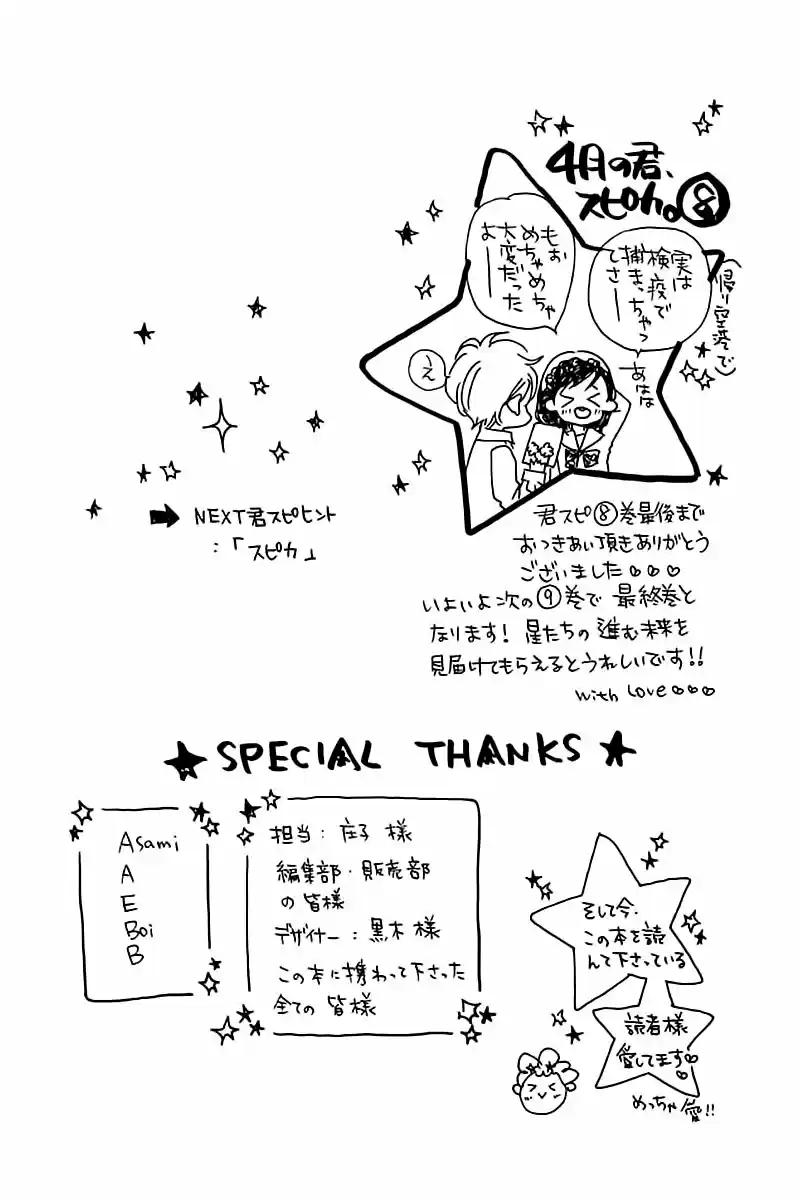 4月の君、
スピカ。⑧
(帰り空港で)
実は
検疫で
捕まっちゃっ
てさー
あはは
もお
めちゃめちゃ
大変だった
よーー
え
君スピ⑧巻最後まで
おつきあい頂きありがとう
ございました♡♡♡
いよいよ次の⑨巻で最終巻と
なります! 星たちの進む未来を
見届けてもらえるとうれしいです!!
with Love♡♡♡
➡ NEXT君スピヒント
:「スピカ」
★SPECIAL THANKS★
Asami
A
E
Boi
B
担当:庄子様
編集部・販売部
の皆様
デザイナー:黒木様
この本に携わって下さった
全ての皆様
そして今、
この本を読
んで下さっている
読者様
愛してます♡
めっちゃ愛!!